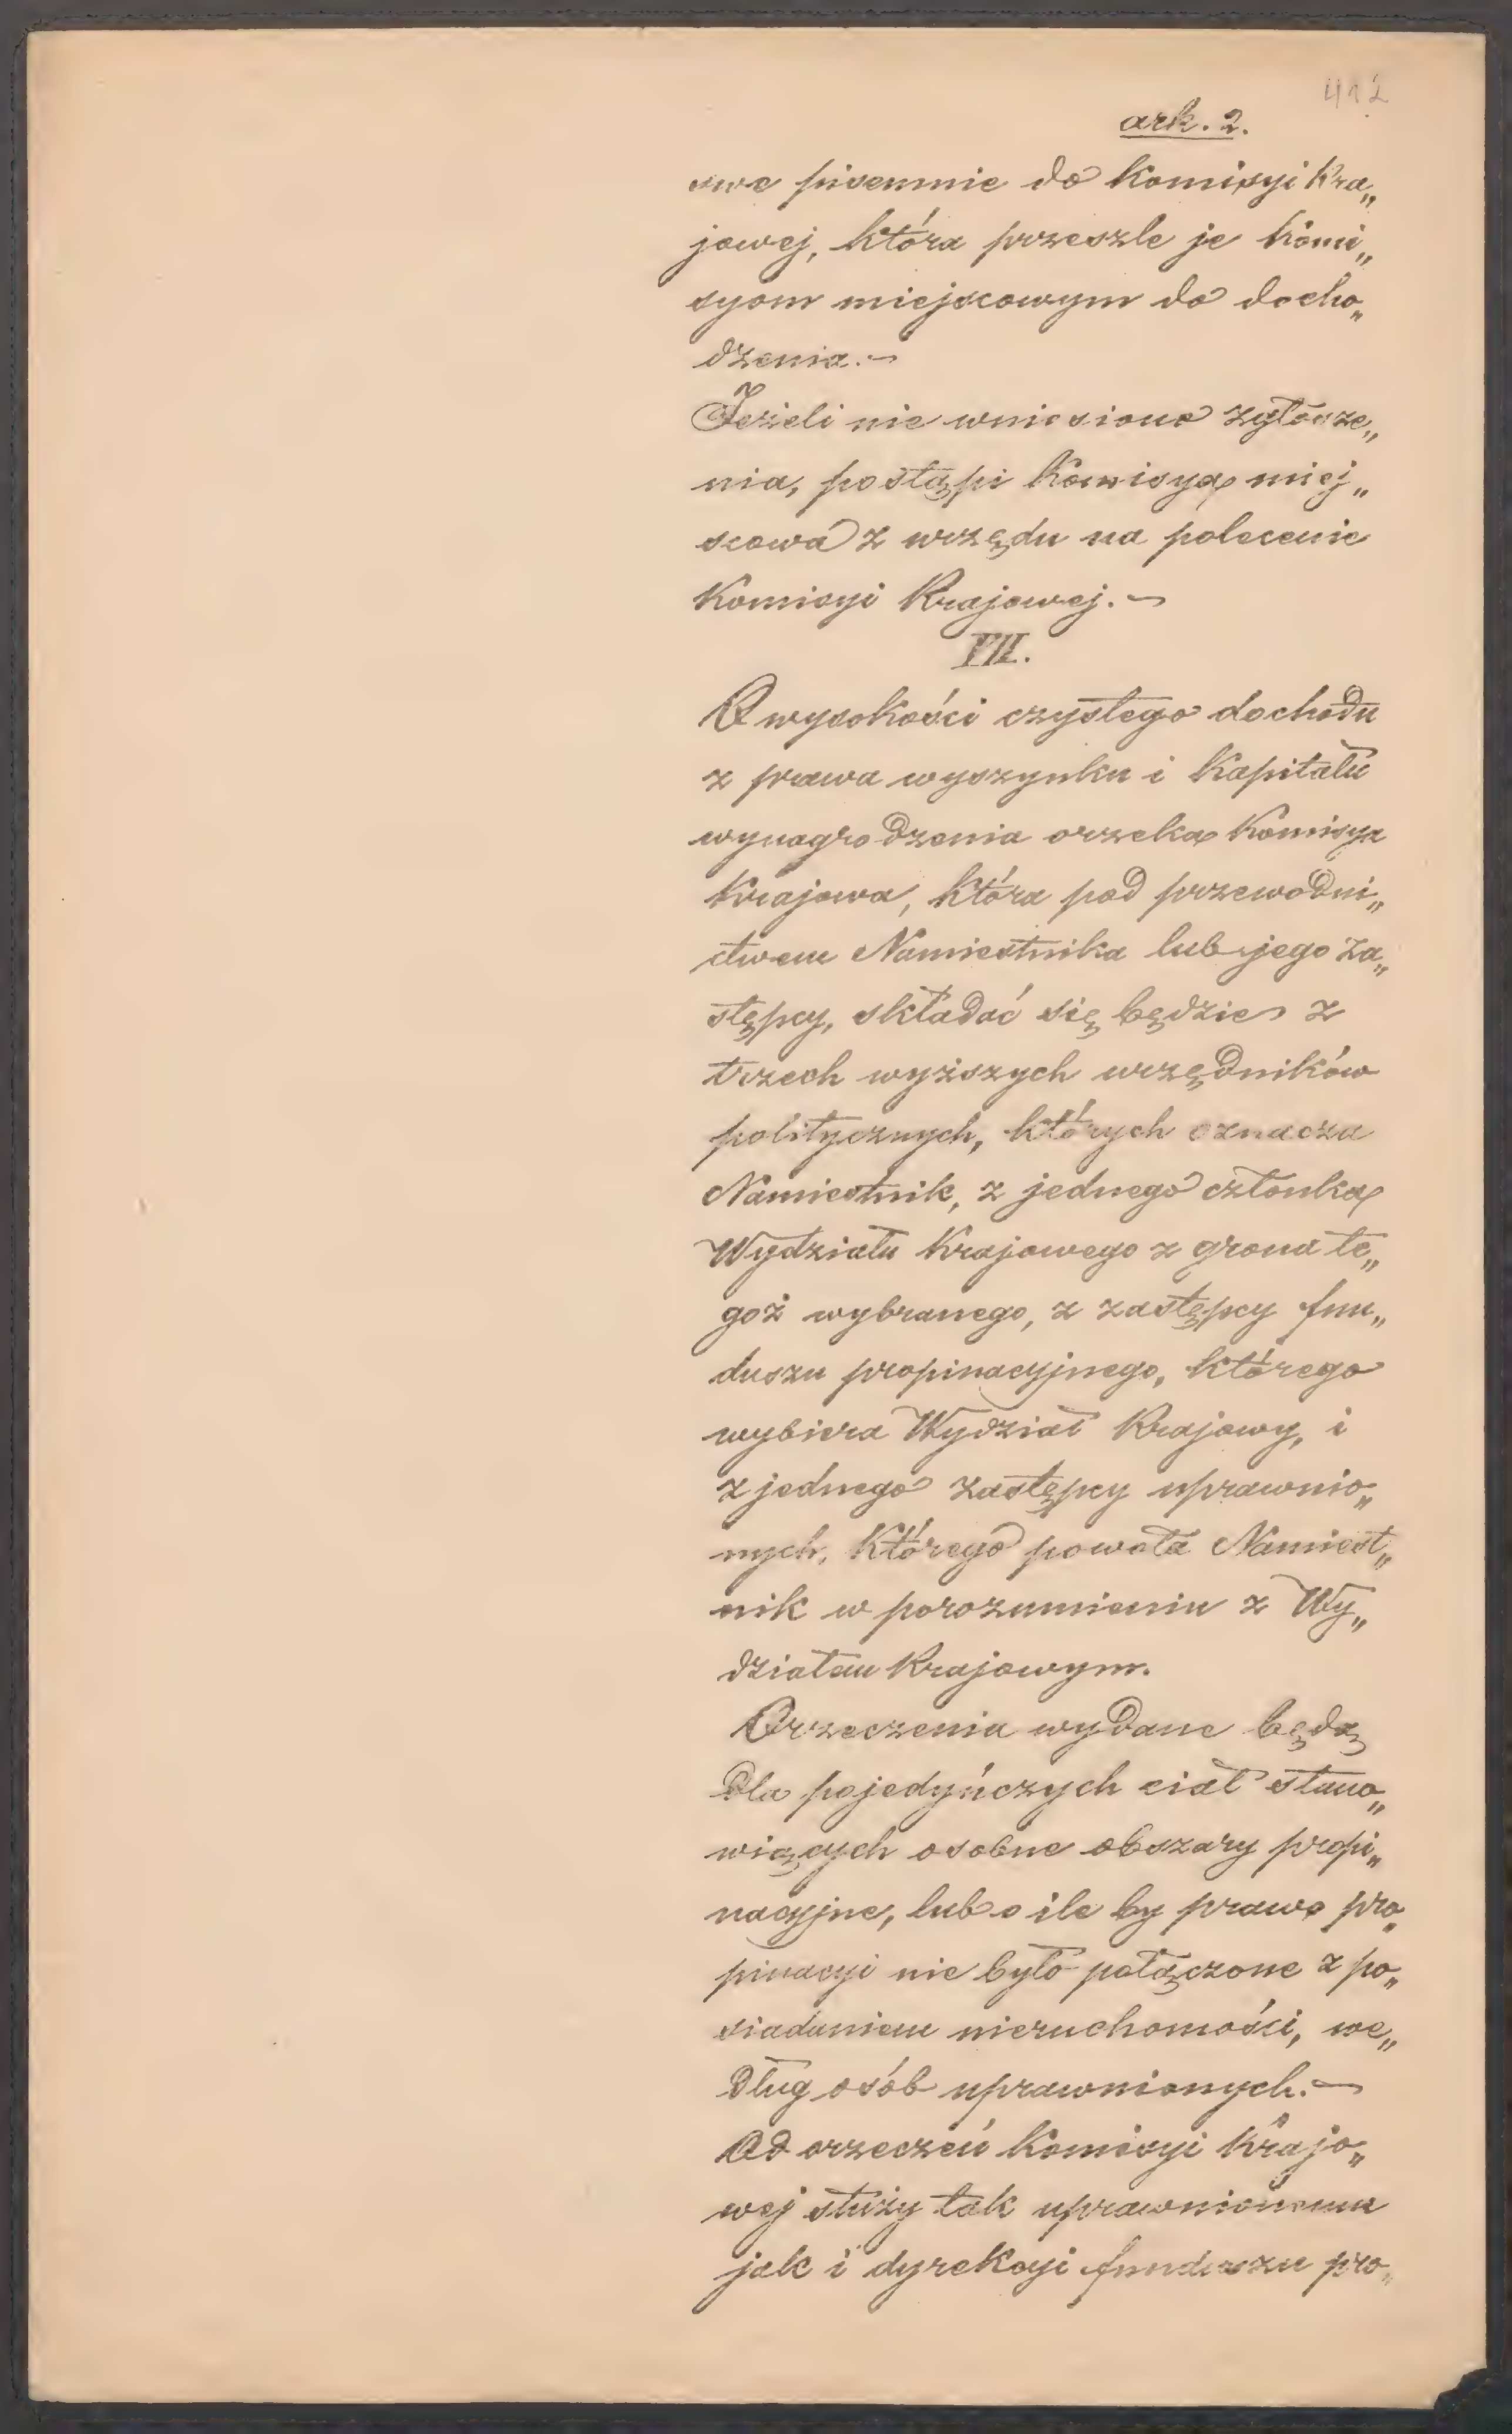 412
ark. 2.
swe pisemnie do Komisyi Kra„
jowej, która prześzle je Komi„
syom miejscowym do docho„
dzenia.—
Jeżeli nie wniesiono zgłosze„
nia, postąpi Komisya miej„
scowa z urzędu na polecenie
Komisyi Krajowej.—
VII.
O wysokości czystego dochodu
z prawa wyszynku i Kapitału
wynagrodzenia orzeka Komisya
Krajowa, która pod przewodni„
ctwem Namiestnika lub jego za„
stępcy, składać się będzie z
trzech wyższych urzędników
politycznych, których oznacza
Namiestnik, z jednego członka
Wydziału Krajowego z grona te„
goż wybranego, z zastępcy fun„
duszu propinacyjnego, którego
wybiera Wydział Krajowy, i
z jednego zastępcy uprawnio„
nych, którego powoła Namiest„
nik w porozumieniu z Wy„
działem Krajowym.
Orzeczenia wydane będą
dla pojedyńczych ciał stano„
wiących osobne obszary propi„
nacyjne, lub o ile by prawo pro„
pinacyi nie było połączone z po„
siadaniem nieruchomości, we„
dług osób uprawnionych.—
Od orzeczeń Komisyi Krajo„
wej służy tak uprawnionemu
jak i dyrekcyi funduszu pro„